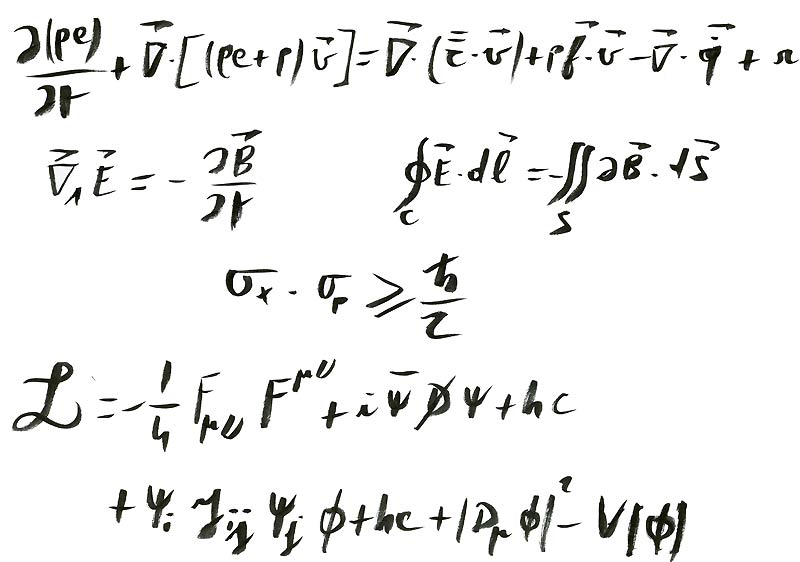 ∂(ρe)/∂t + ∇⃗·[(ρe+p)v⃗] = ∇⃗·(τ̿·v⃗) + ρf⃗·v⃗ − ∇⃗·q̇⃗ + r
∇⃗∧E⃗ = − ∂B⃗/∂t   ∮_C E⃗·dl⃗ = −∬_S ∂B⃗·dS⃗
σₓ · σₚ ⩾ ℏ/2
ℒ = − 1/4 F_μν F^μν + i ψ̄ D̸ ψ + h c
+ ψ_i y_ij ψ_j ϕ + hc + |D_μ ϕ|² − V|ϕ|